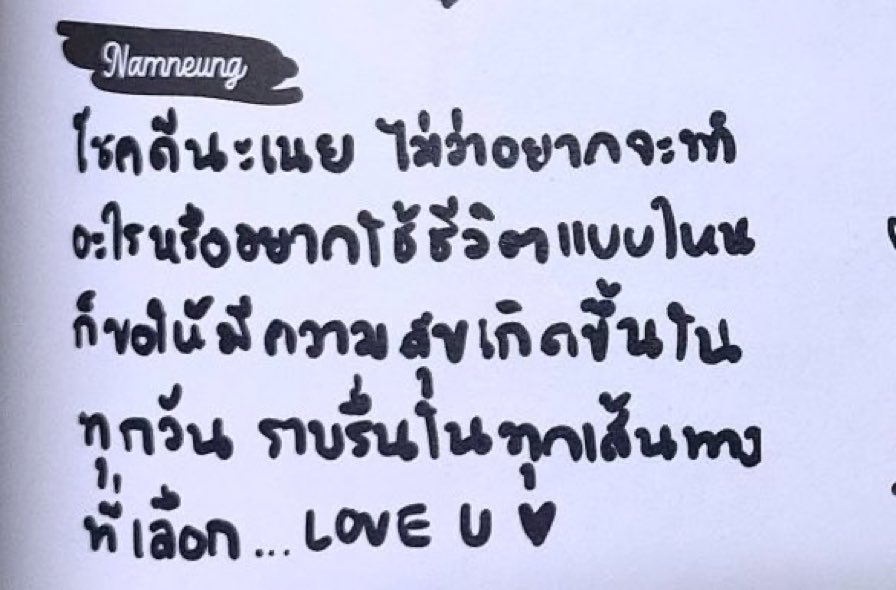 Namneung
โชคดีนะเนย ไม่ว่าอยากจะทำ
อะไรหรืออยากใช้ชีวิตแบบไหน
ก็ขอให้มีความสุขเกิดขึ้นใน
ทุกวัน ราบรื่นในทุกเส้นทาง
ที่เลือก... LOVE U ♥